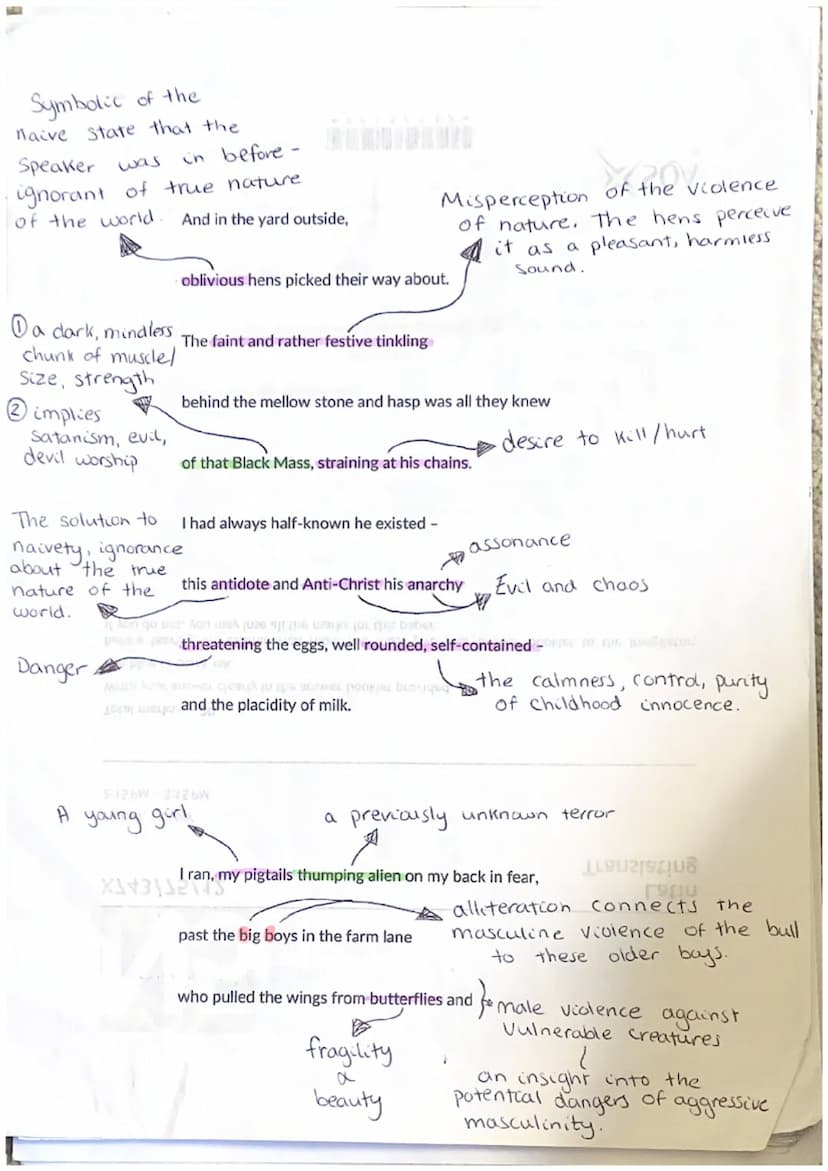 Symbolic of the
naive state that the
speaker was in before -
ignorant of true nature
of the world.
And in the yard outside,
Misperception of the violence
of nature. The hens perceive
it as a pleasant, harmless
sound.
oblivious hens picked their way about.
① a dark, mindless
chunk of muscle/
size, strength
The faint and rather festive tinkling
② implies
satanism, evil,
devil worship
behind the mellow stone and hasp was all they knew
desire to kill/hurt
of that Black Mass, straining at his chains.
The solution to
naivety, ignorance
about the true
nature of the
world.
I had always half-known he existed –
assonance
this antidote and Anti-Christ his anarchy
Evil and chaos
threatening the eggs, well rounded, self-contained –
Danger
the calmness, control, purity
of childhood innocence.
and the placidity of milk.
A young girl
a previously unknown terror
I ran, my pigtails thumping alien on my back in fear,
Translating
Latin
X743/75/12
past the big boys in the farm lane
alliteration connects the
masculine violence of the bull
to these older boys.
who pulled the wings from butterflies and
male violence against
vulnerable creatures
fragility
&
beauty
an insight into the
potential dangers of aggressive
masculinity.